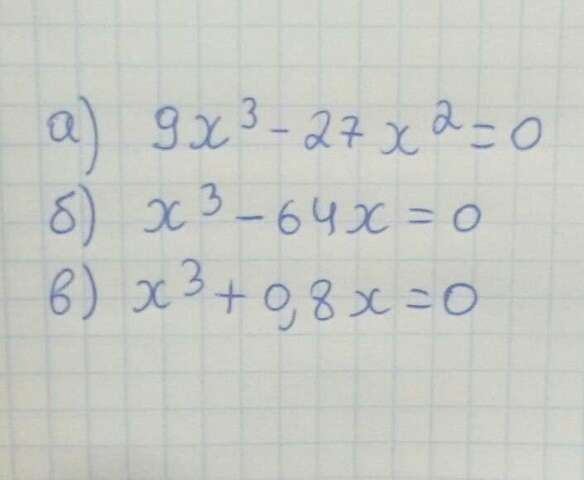 а) 9x³ - 27x² = 0
б) x³ - 64x = 0
в) x³ + 0,8x = 0